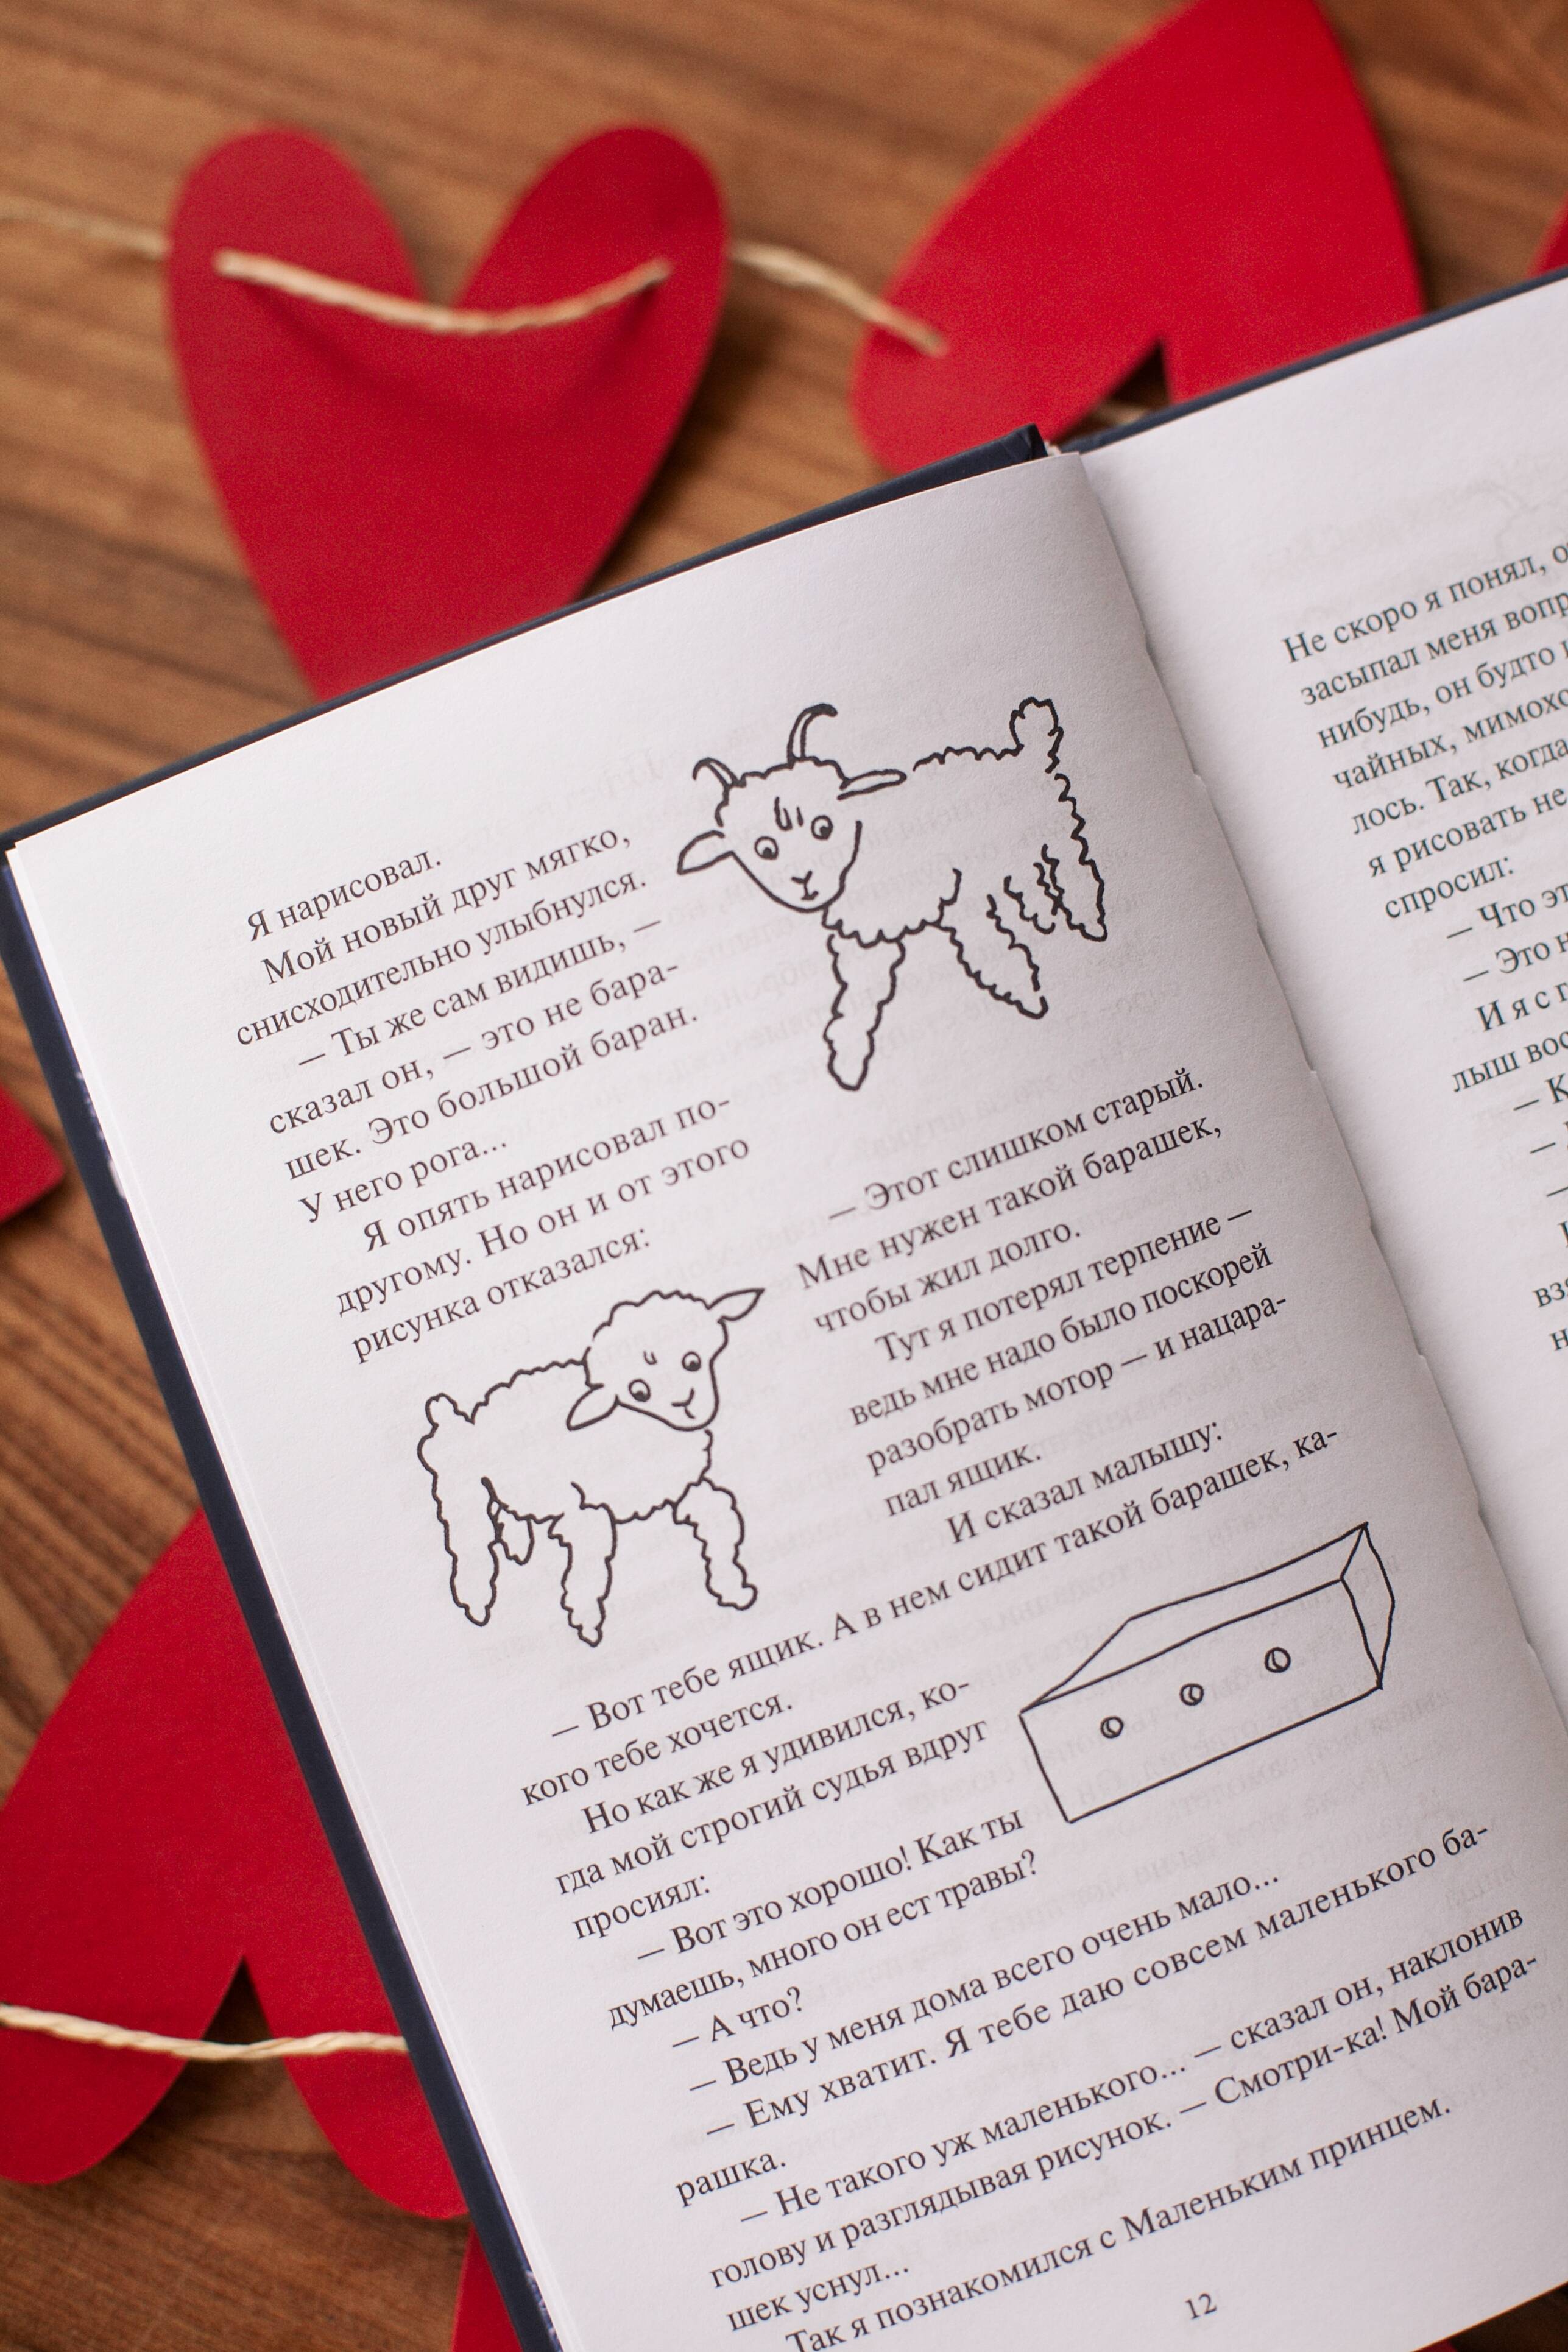 Я нарисовал.
Мой новый друг мягко,
снисходительно улыбнулся.
— Ты же сам видишь, —
сказал он, — это не бара-
шек. Это большой баран.
У него рога...
Я опять нарисовал по-
другому. Но он и от этого
рисунка отказался:
— Этот слишком старый.
Мне нужен такой барашек,
чтобы жил долго.
Тут я потерял терпение —
ведь мне надо было поскорей
разобрать мотор — и нацара-
пал ящик.
И сказал малышу:
— Вот тебе ящик. А в нем сидит такой барашек, ка-
кого тебе хочется.
Но как же я удивился, ко-
гда мой строгий судья вдруг
просиял:
— Вот это хорошо! Как ты
думаешь, много он ест травы?
— А что?
— Ведь у меня дома всего очень мало...
— Ему хватит. Я тебе даю совсем маленького ба-
рашка.
— Не такого уж маленького... — сказал он, наклонив
голову и разглядывая рисунок. — Смотри-ка! Мой бара-
шек уснул...
Так я познакомился с Маленьким принцем.
12
Не скоро я понял,
засыпал меня
нибудь, он будто
чайных,
лось. Так, когда
я рисовать не
спросил:
— Что
— Это
И я с
лыш